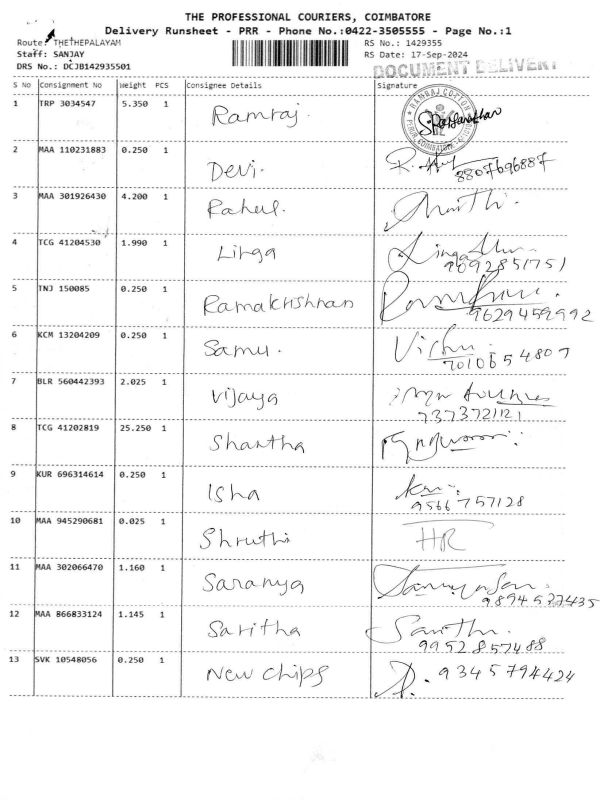 THE PROFESSIONAL COURIERS, COIMBATORE
Delivery Runsheet - PRR - Phone No.:0422-3505555 - Page No.:1
Route: THETHEPALAYAM
RS No.: 1429355
Staff: SANJAY
RS Date: 17-Sep-2024
DRS No.: DCJB142935501
DOCUMENT DELIVERY
S No Consignment No Weight PCS Consignee Details Signature
1 TRP 3034547 5.350 1 Ramraj.
RAMRAJ COTTON
2 MAA 110231883 0.250 1 Devi.
8807696887
3 MAA 301926430 4.200 1 Rahul.
4 TCG 41204530 1.990 1 Linga
9092851751
5 TNJ 150085 0.250 1 Ramakrishnan
9629459992
6 KCM 13204209 0.250 1 Samu. Vishu
7010654807
7 BLR 560442393 2.025 1 Vijaya
7373721121
8 TCG 41202819 25.250 1 Shantha
9 KUR 696314614 0.250 1 Isha
9566757128
10 MAA 945290681 0.025 1 Shruthi HR
11 MAA 302066470 1.160 1 Saranya
9894537435
12 MAA 866833124 1.145 1 Saritha
9952857488
13 SVK 10548056 0.250 1 New Chips 9345794424